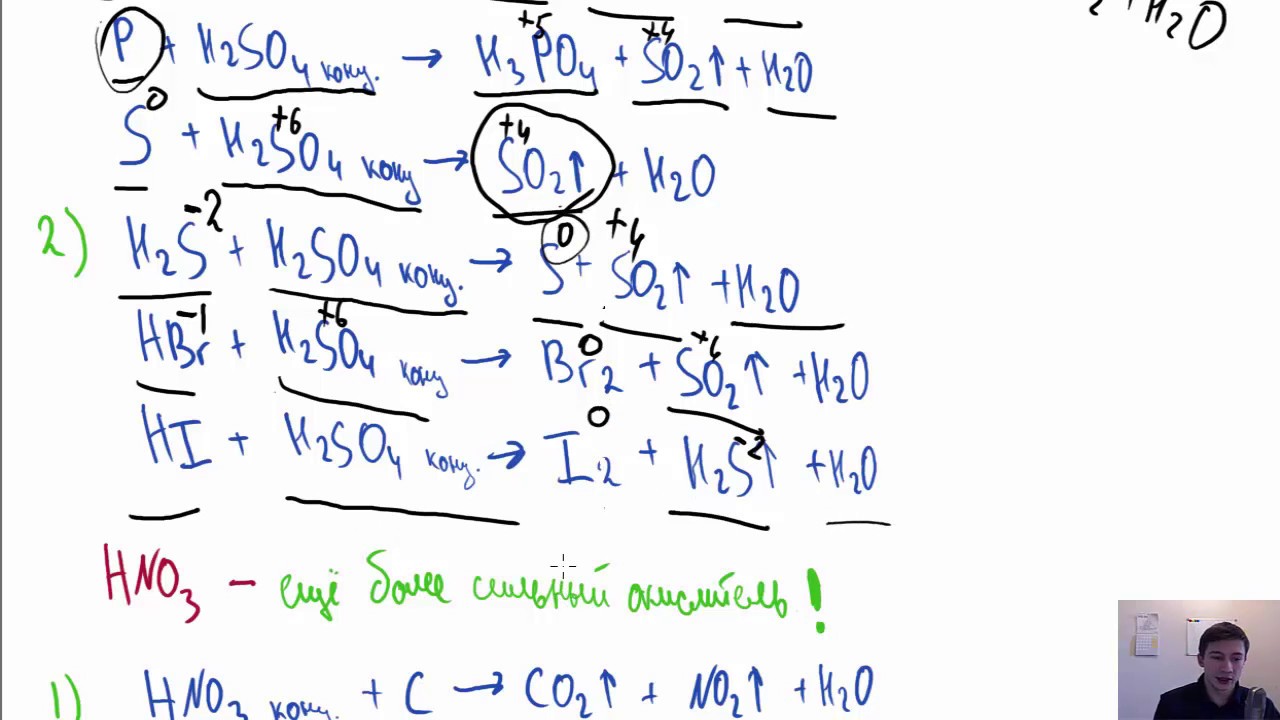 2 + H2O
+5 +4
P + H2SO4 конц. → H3PO4 + SO2↑ + H2O
0 +6 +4
S + H2SO4 конц → SO2↑ + H2O
-2 0 +4
2) H2S + H2SO4 конц. → S + SO2↑ + H2O
-1 +6 0 +4
HBr + H2SO4 конц → Br2 + SO2↑ + H2O
0 -2
HI + H2SO4 конц. → I2 + H2S↑ + H2O
HNO3 – ещё более сильный окислитель!
1) HNO3 конц. + C → CO2↑ + NO2↑ + H2O